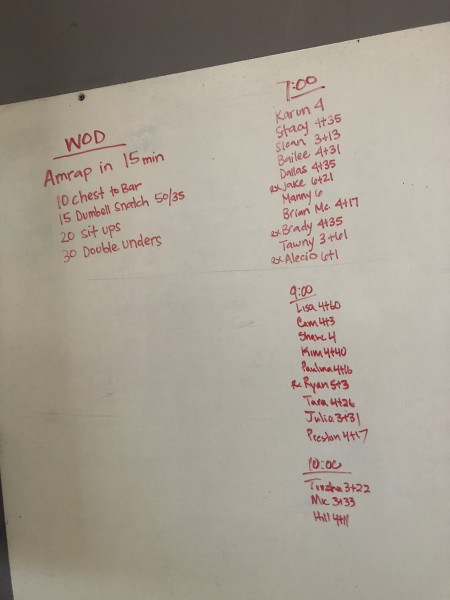 WOD
Amrap in 15 min
10 chest to Bar
15 Dumball Snatch 50/35
20 sit ups
30 Double unders
7:00
Karun 4
Stacy 4+35
Sloan 3+13
Bailee 4+31
Dallas 4+35
Rx Jake 6+21
Manny 6
Brian Mc. 4+17
Rx Brady 4+35
Tawny 3+61
Rx Alecio 6+1
9:00
Lisa 4+60
Cam 4+3
Shane 4
Kim 4+40
Paulina 4+16
Rx Ryan 5+3
Tara 4+26
Julia 3+31
Preston 4+17
10:00
3+22
Mic 3+33
Hill 4+11